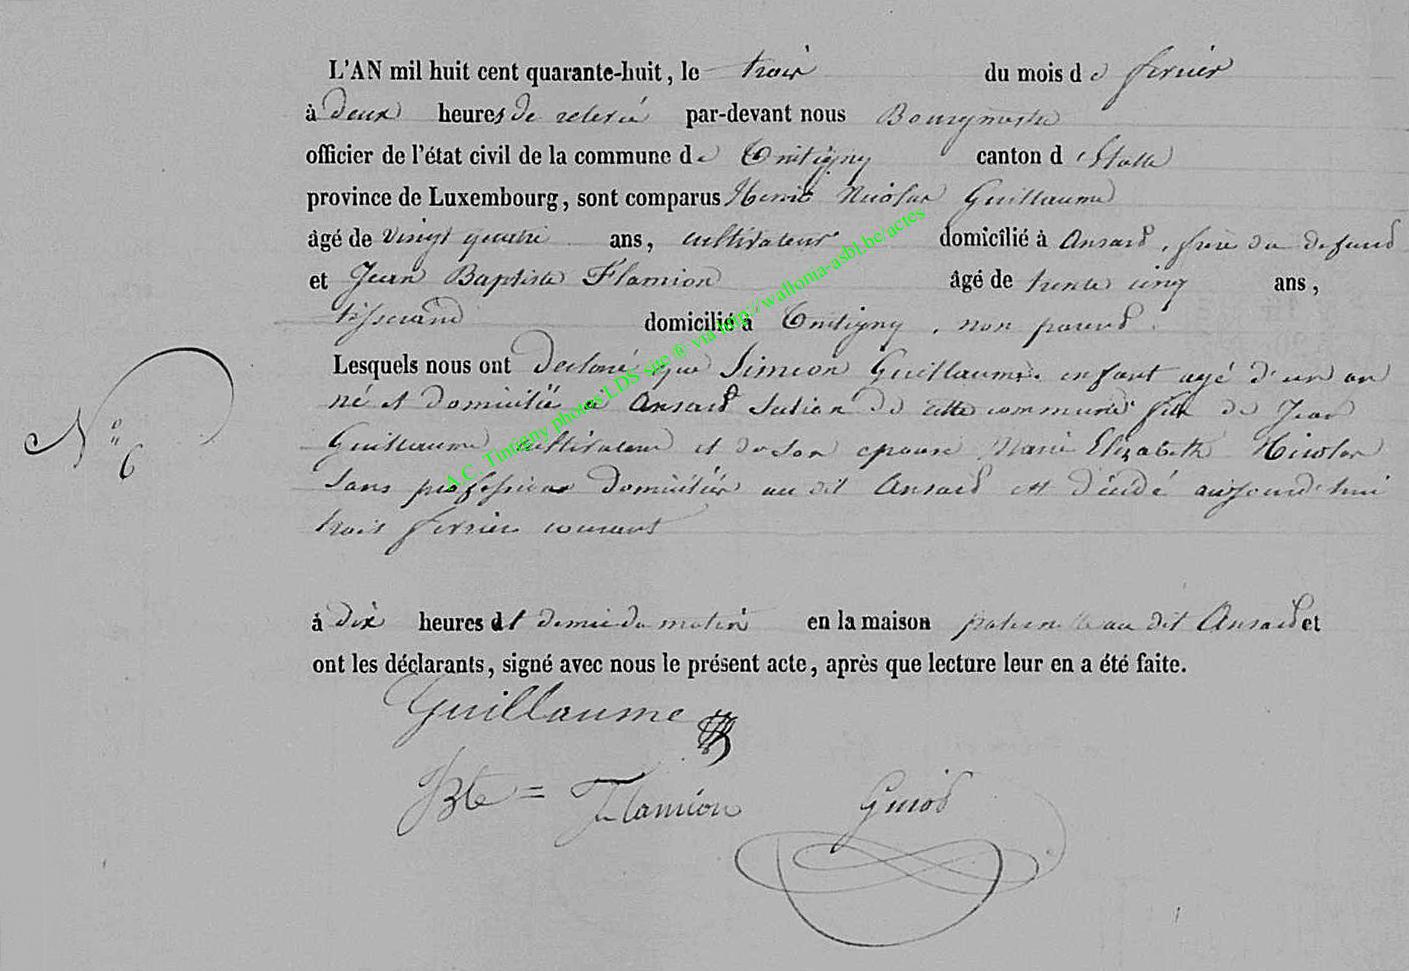 L'AN mil huit cent quarante-huit, le trois du mois de fevrier
à deux heures de relevée par-devant nous Bourgmestre
officier de l'état civil de la commune de Tintigny canton d'Etalle
province de Luxembourg, sont comparus Henri Nicolas Guillaume
âgé de vingt quatre ans, cultivateur domicilié à Ansart, frère du defunt
et Jean Baptiste Flamion âgé de trente cinq ans,
tisserand domicilié à Tintigny, non parent.
Lesquels nous ont declaré que Simeon Guillaume, enfant agé d'un an
né et domicilié à Ansart section de cette commune fils de Jean
N° 6
Guillaume cultivateur et de son epouse Marie Elizabeth Nicolas
sans profession domiciliés au dit Ansart est décédé aujourd'hui
trois fevrier courant
à dix heures et demie du matin en la maison paternelle au dit Ansart et
ont les déclarants, signé avec nous le présent acte, après que lecture leur en a été faite.
Guillaume
JBte = Flamion Guiot
A.C. Tintigny photos LDS site ® via http://wallonia-asbl.be/actes